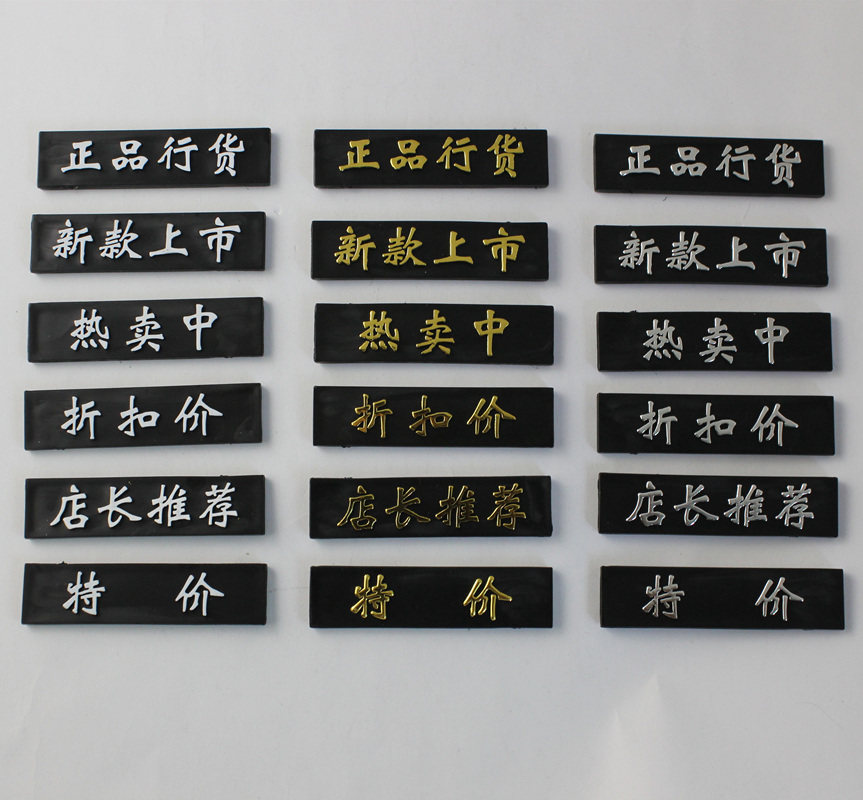 正品行货 正品行货 正品行货
新款上市 新款上市 新款上市
热卖中 热卖中 热卖中
折扣价 折扣价 折扣价
店长推荐 店长推荐 店长推荐
特价 特价 特价